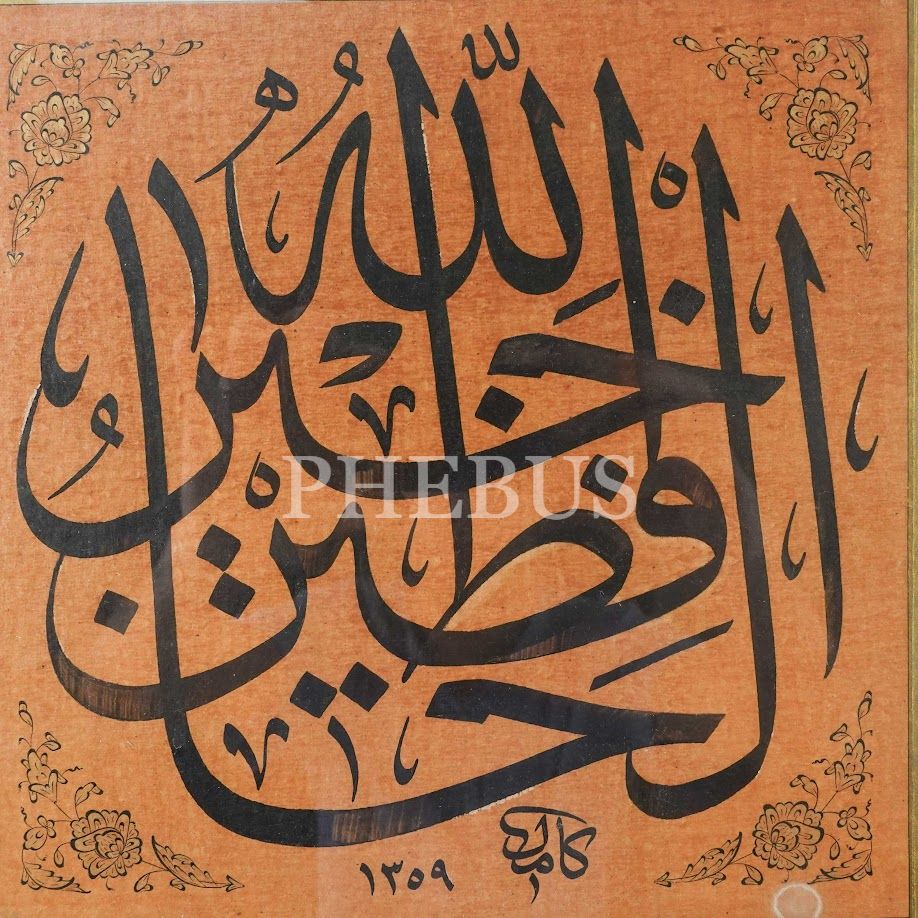 الله خير الحافظين
كامل
١٣٥٩
PHEBUS